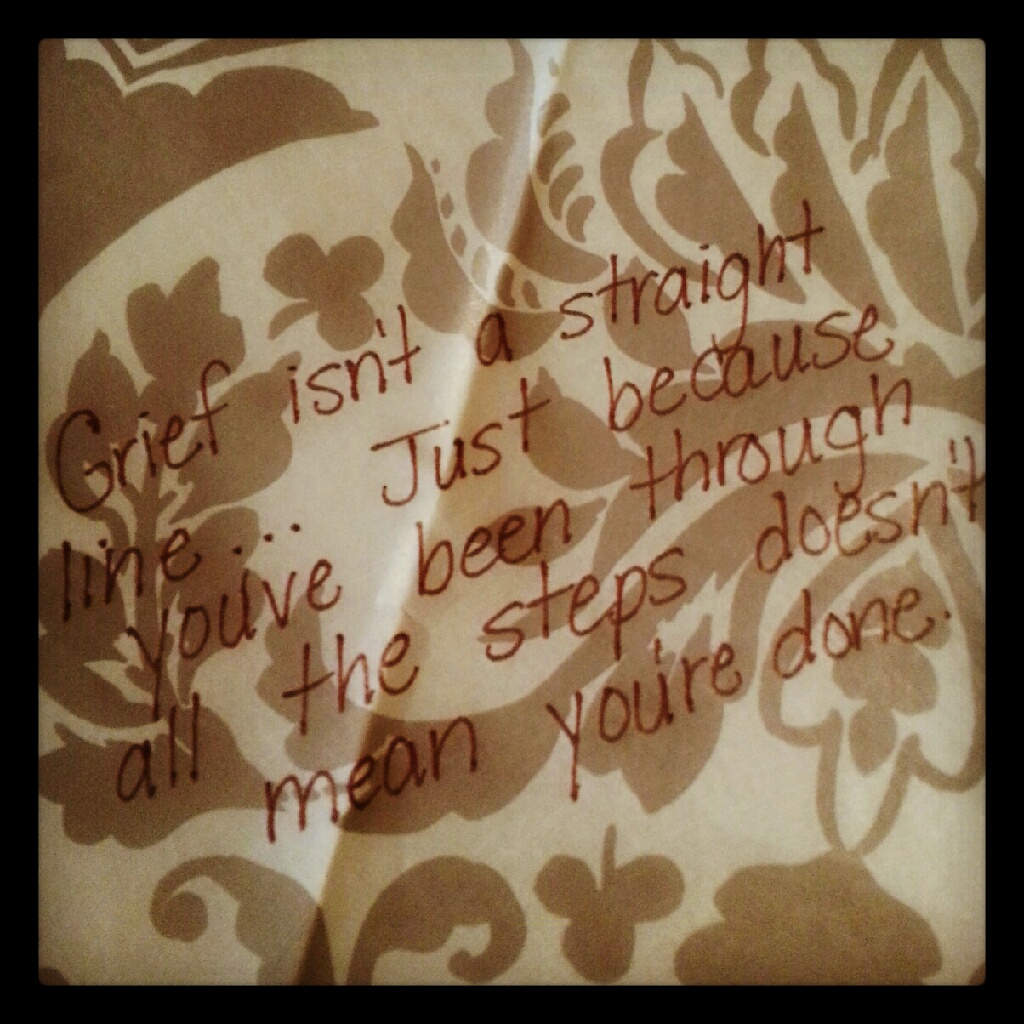 Grief isn't a straight
line... Just because
you've been through
all the steps doesn't
mean you're done.